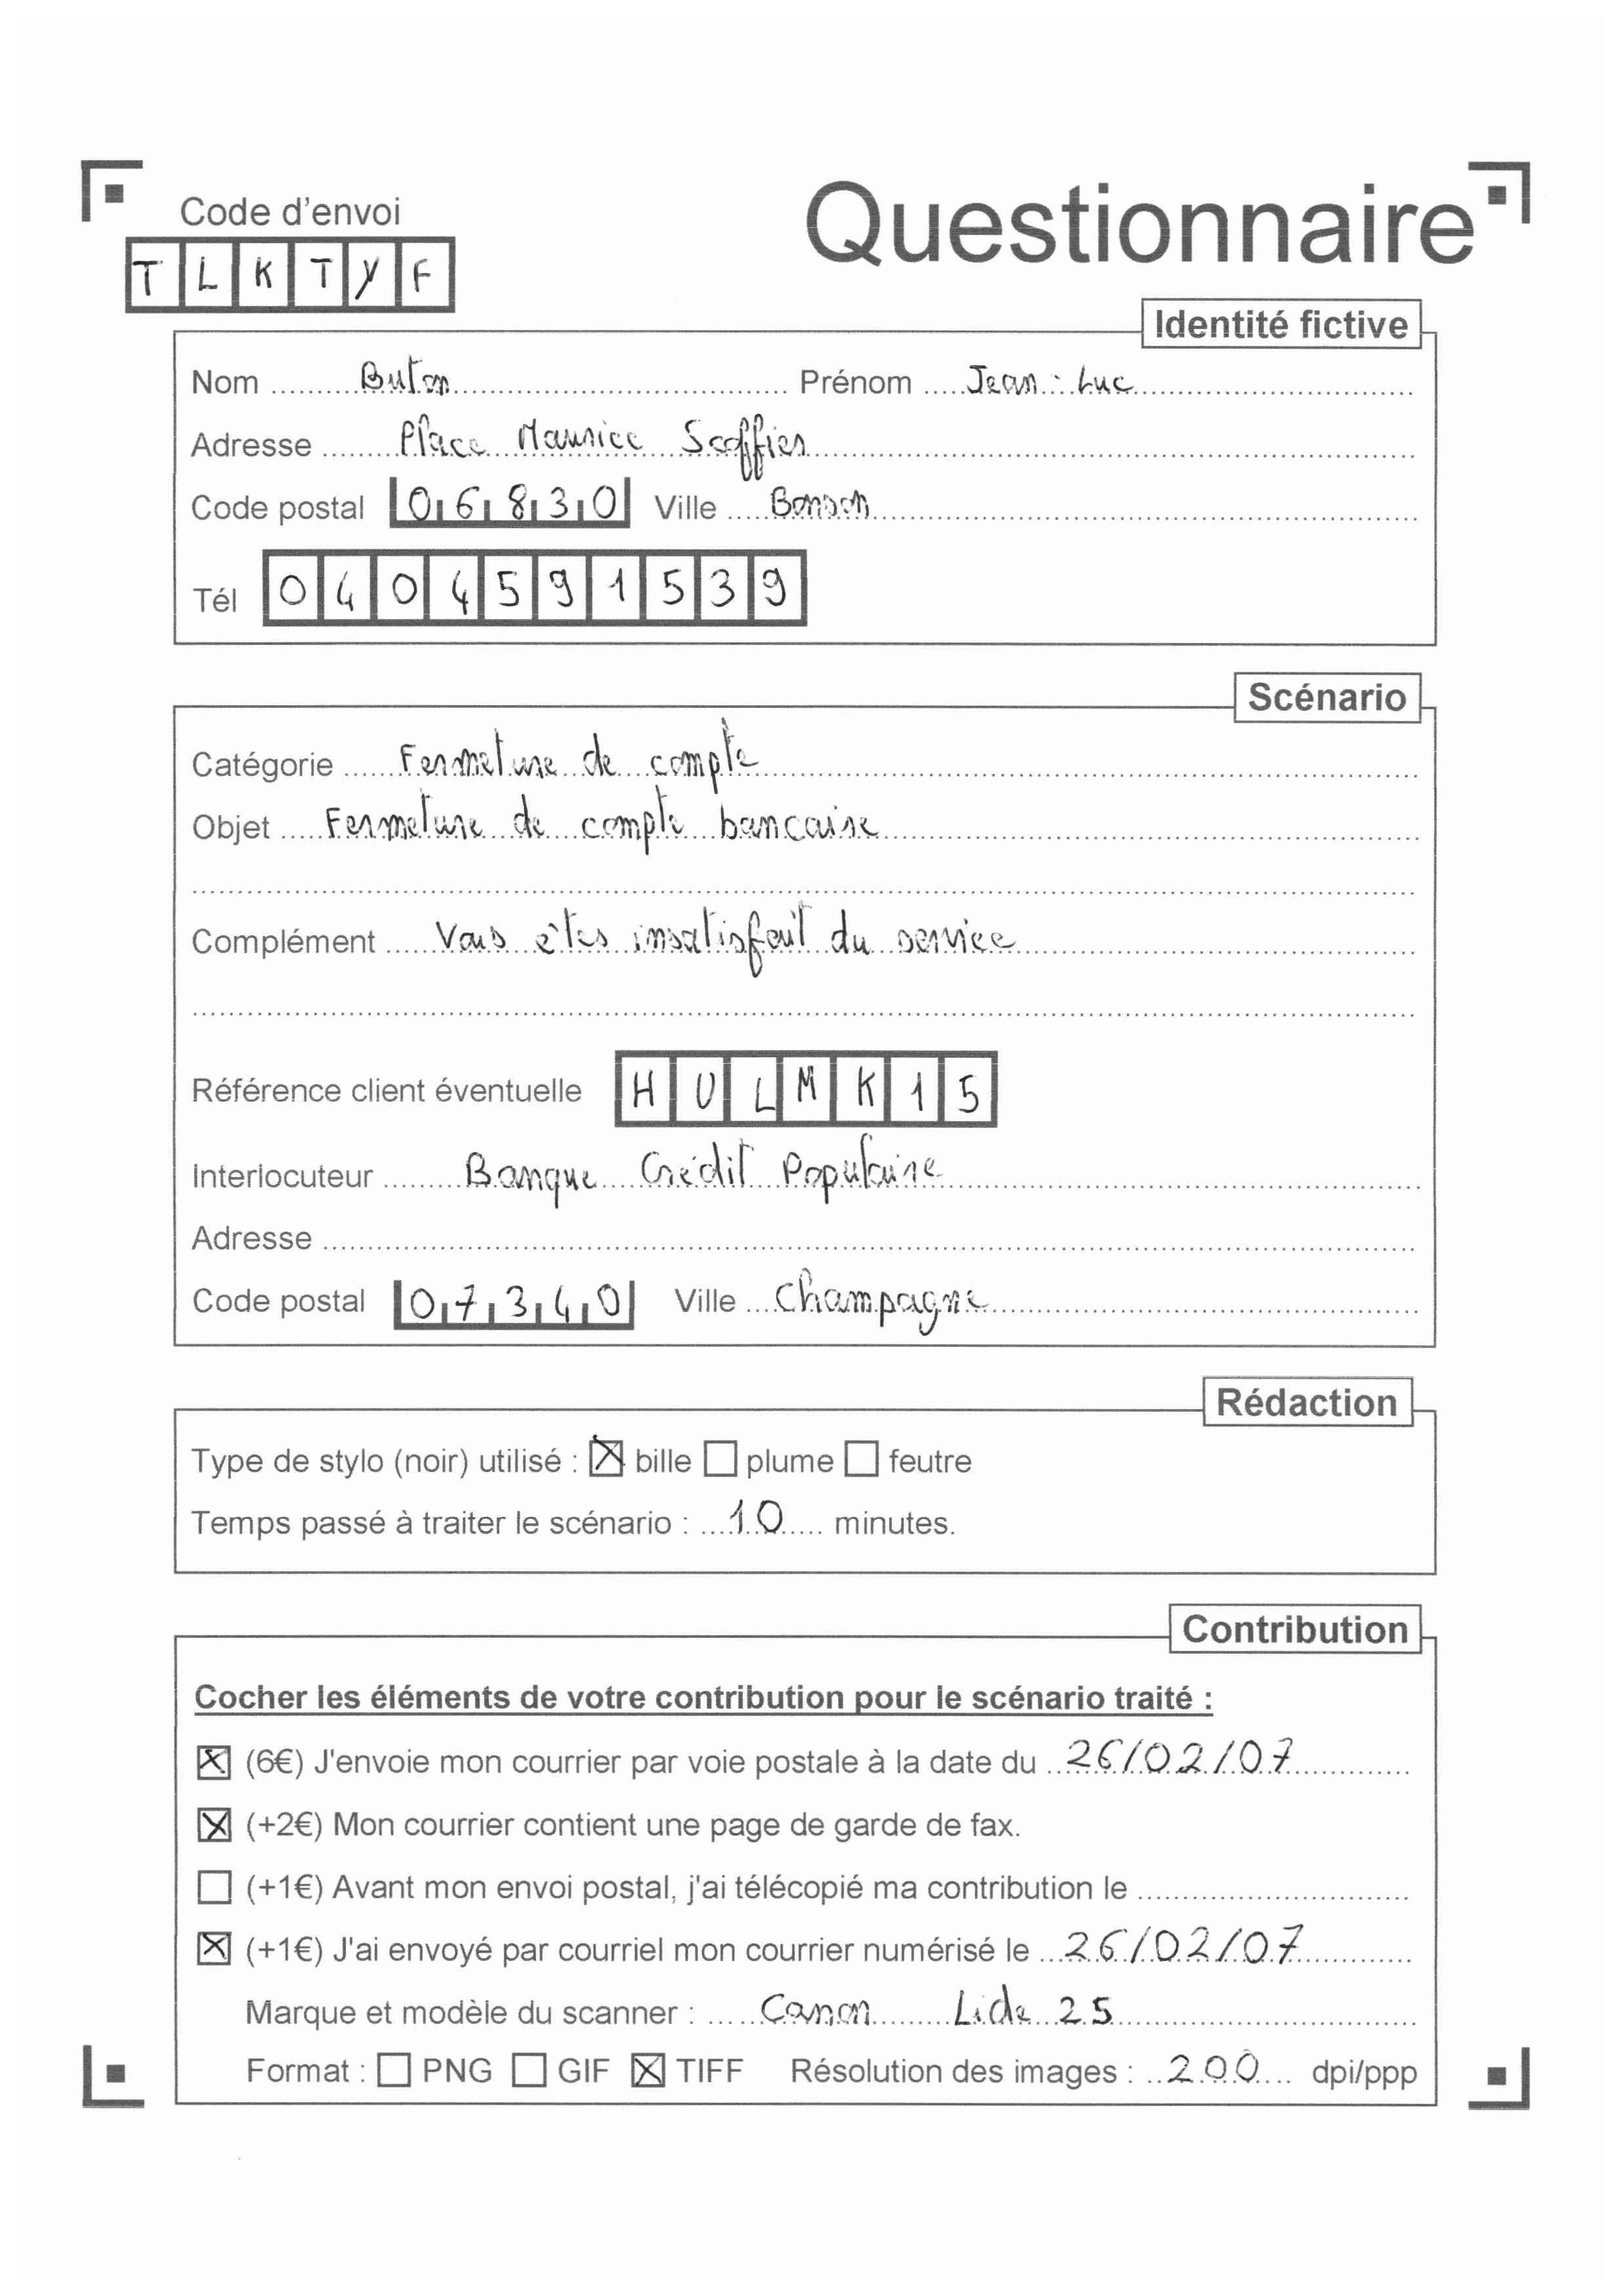 Code d'envoi
Questionnaire
T L K T Y F
Identité fictive
Nom Buton Prénom Jean-Luc
Adresse Place Maurice Scoffier
Code postal 06830 Ville Bonson
Tél 0404591539
Scénario
Catégorie Fermeture de compte
Objet Fermeture de compte bancaire
Complément Vous êtes insatisfait du service
Référence client éventuelle H U L M K 1 5
Interlocuteur Banque Crédit Populaire
Adresse
Code postal 07340 Ville Champagne
Rédaction
Type de stylo (noir) utilisé : bille plume feutre
Temps passé à traiter le scénario : 10 minutes.
Contribution
Cocher les éléments de votre contribution pour le scénario traité :
(6€) J'envoie mon courrier par voie postale à la date du 26/02/07
(+2€) Mon courrier contient une page de garde de fax.
(+1€) Avant mon envoi postal, j'ai télécopié ma contribution le
(+1€) J'ai envoyé par courriel mon courrier numérisé le 26/02/07
Marque et modèle du scanner : Canon Lide 25
Format : PNG GIF TIFF Résolution des images : 200 dpi/ppp